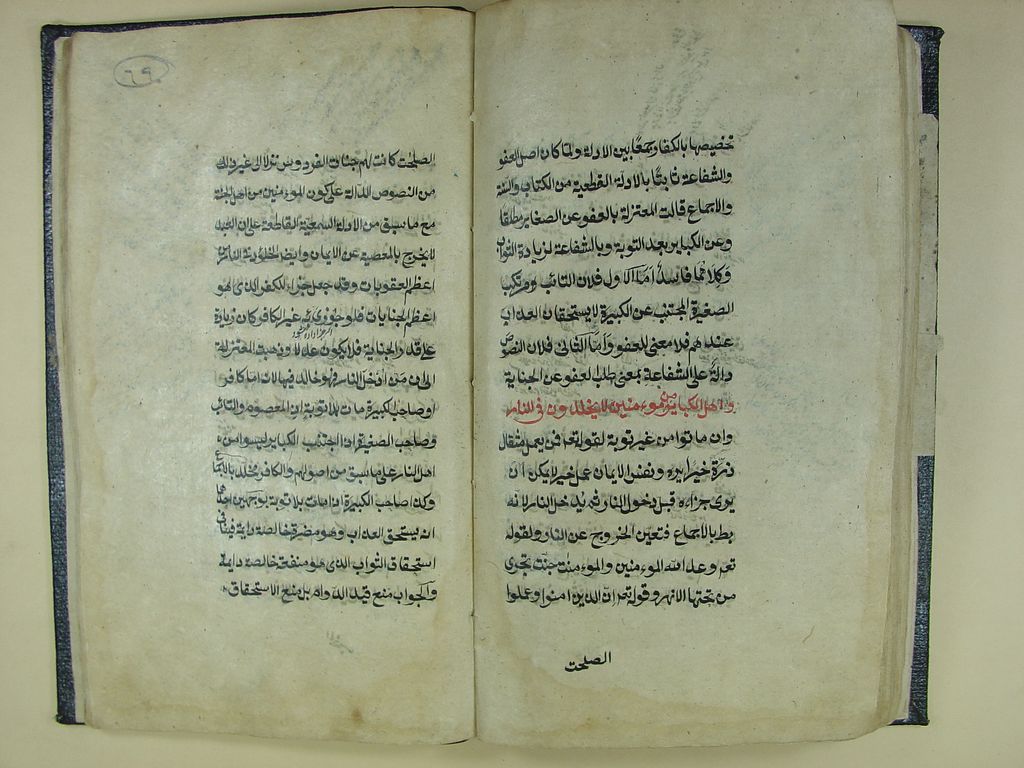 تخصيصها بالكفار جمعًا بين الادلة ولما كان اصل العفو
والشفاعة ثابتًا بالادلة القطعية من الكتاب والسنة
والاجماع قالت المعتزلة بالعفو عن الصغاير مطلقا
وعن الكباير بعد التوبة وبالشفاعة لزيادة الثواب
وكلاهما فاسد اما الاول فلان التائب ومرتكب
الصغيرة المجتنب عن الكبيرة لا يستحقان العذاب
عندهم فلا معنى للعفو واما الثانى فلان النصوص
دالة على الشفاعة بمعنى طلب العفو عن الجناية
واهل الكباير من المؤمنين لا يخلدون فى النار
وان ماتوا من غير توبة لقوله تع فمن يعمل مثقال
ذرة خيرا يره ونفس الايمان عمل خير لا يمكن ان
يرى جزاءه قبل دخول النار ثم يدخل النار لانه
بط بالاجماع فتعين الخروج عن النار ولقوله
تع وعد الله المؤمنين والمؤمنت جنت تجرى
من تحتها الانهر وقوله تع ان الذين امنوا وعملوا
الصلحت
٦٩
الصلحت كانت لهم جنات الفردوس نزلا الى غير ذلك
من النصوص الدالة على كون المؤمنين من اهل الجنة
مع ما سبق من الادلة السمعية القاطعة على ان العبد
لا يخرج بالمعصية عن الايمان وايض الخلود فى النار من
اعظم العقوبات وقد جعل جزاء الكفر الذى هو
اعظم الجنايات فلو جوزى به غير الكافر كان زيادة
على قدر الجناية فلا يكون عدلا وذهبت المعتزلة
الى ان من ادخل النار فهو خالد فيها لانه اما كافر
او صاحب الكبيرة مات بلا توبة اذ المعصوم والتائب
وصاحب الصغيرة اذا اجتنب الكباير ليسوا من
اهل النار على ما سبق من اصولهم والكافر مخلد بالاجماع
وكذا صاحب الكبيرة اذا مات بلا توبة بوجهين احدهما
انه يستحق العذاب وهو مضرة خالصة دايمة فينافى
استحقاق الثواب الذى هو منفعة خالصة دايمة
والجواب منع قيد الدوام بل منع الاستحقاق